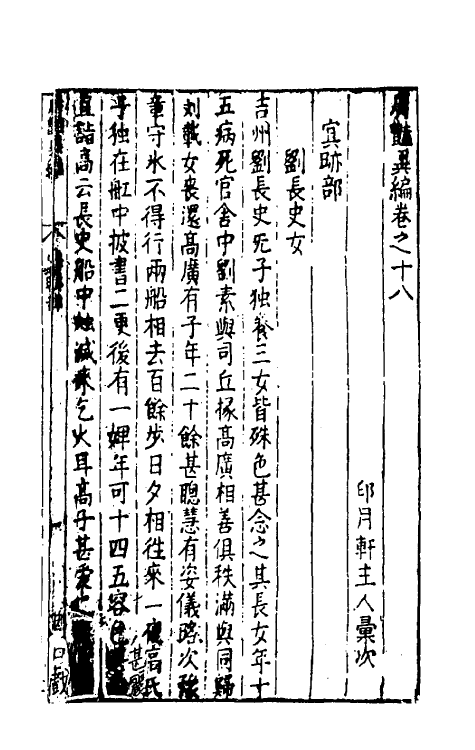 廣艷異編卷之十八
印月軒主人彙次
㝠跡部
劉長史女
吉州劉長史无子独養三女皆殊色甚念之其長女年十
五病死官舍中劉素與司丘掾高廣相善俱秩滿與同歸
刘載女喪還高廣有子年二十餘甚聰慧有姿儀路次豫
章守氷不得行兩船相去百餘步日夕相徃來一夜高氏
子独在舡中披書二更後有一婢年可十四五容色甚麗
直詣高云長史船中燭滅來乞火耳高子甚愛之